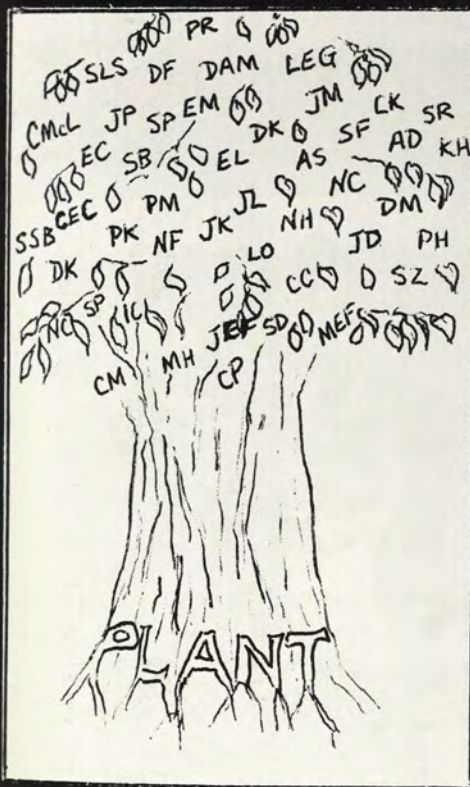 PR
SLS DF DAM LEG
CMcL JP SP EM JM LK SR
EC SB EL DK SF AD KH
SSB CEC PM JL AS NC DM
DK PK NF JK NH JD PH
LO CC SZ
NC SP IC JEF SD MEF
CM MH CP
PLANT